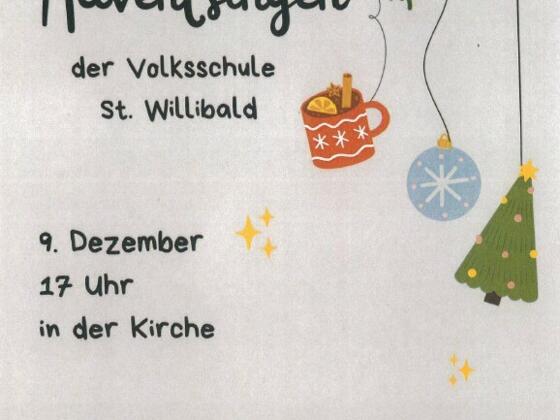 Adventsingen
der Volksschule
St. Willibald
9. Dezember
17 Uhr
in der Kirche